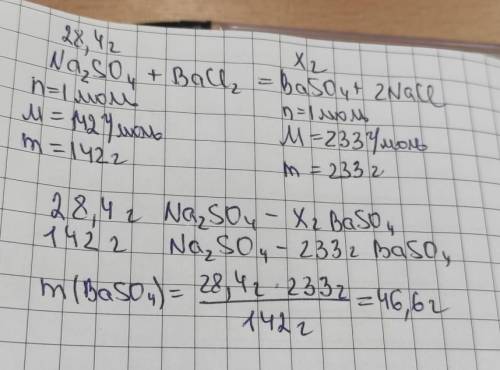 28,4г xг
Na₂SO₄ + BaCl₂ = BaSO₄ + 2NaCl
n=1моль n=1моль
M=142г/моль M=233г/моль
m=142г m=233г
28,4г Na₂SO₄ – xг BaSO₄
142г Na₂SO₄ – 233г BaSO₄
m(BaSO₄) = 28,4г · 233г / 142г = 46,6г